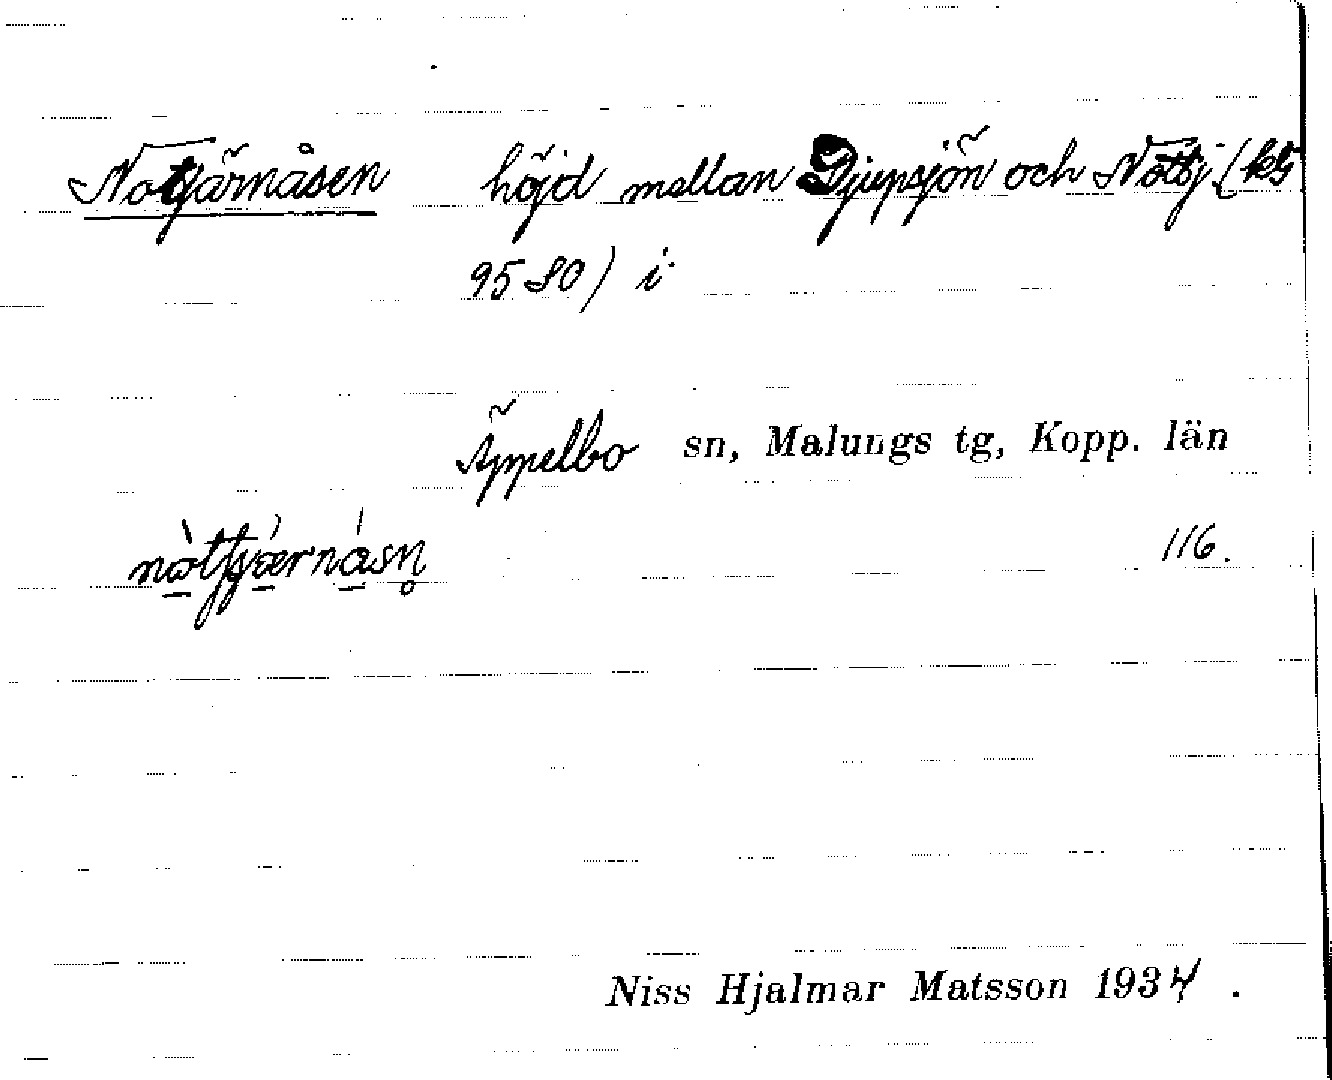 Notjärnåsen höjd mellan Djupsjön och Nottj. (kbl
9580) i
Äppelbo sn, Malungs tg, Kopp. län
116.
Niss Hjalmar Matsson 1934.